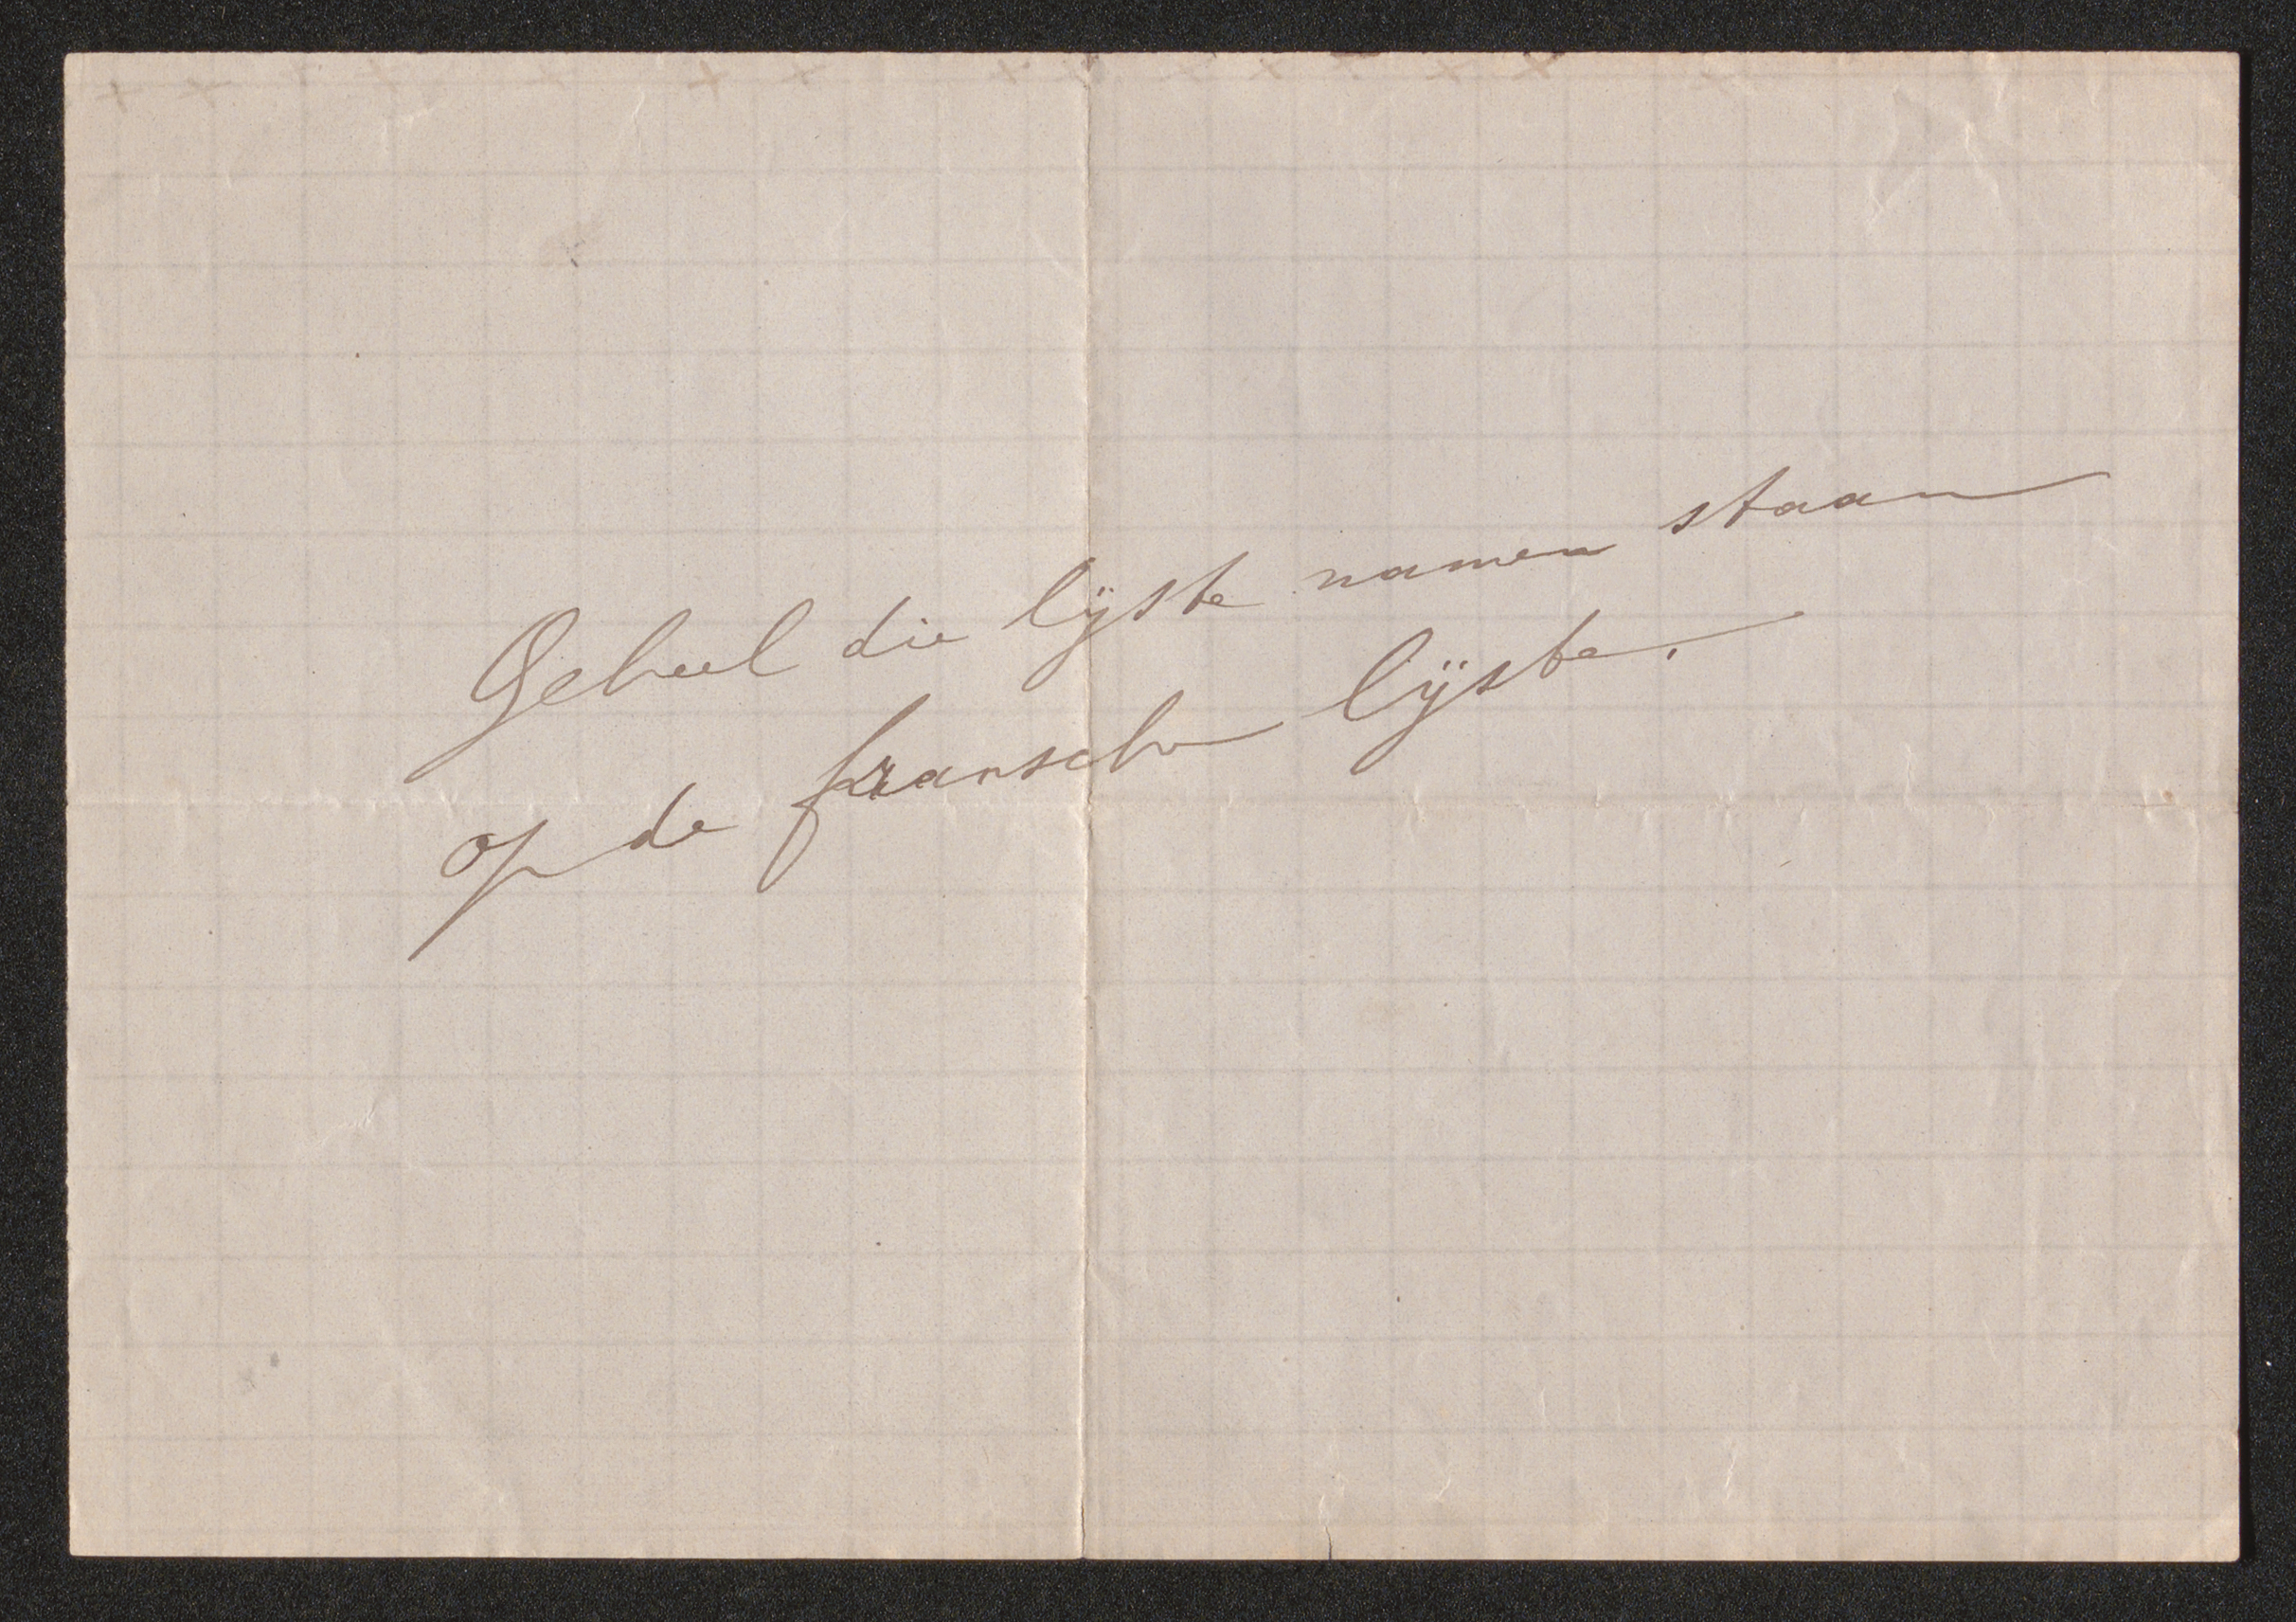 Geheel die lijste namen staan
op de fransche lijste.